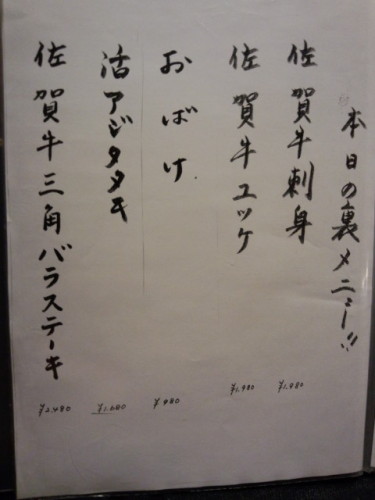 本日の裏メニュー!!
佐賀牛刺身 ¥1,980
佐賀牛ユッケ ¥1,980
おばけ ¥980
活アジタタキ ¥1,680
佐賀牛三角バラステーキ ¥2,480